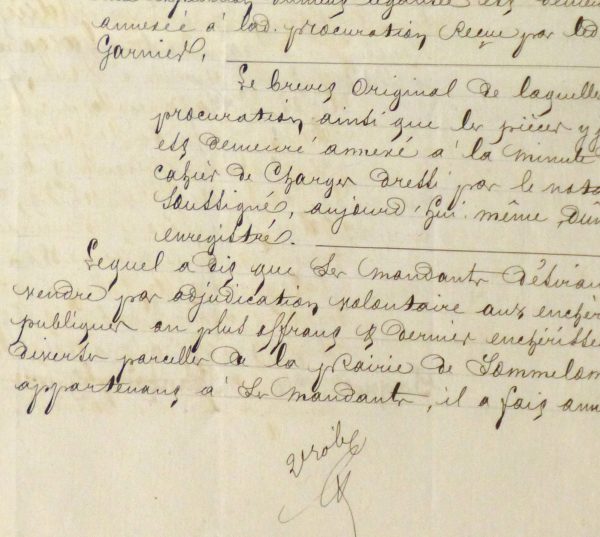 expédition dûment légalisée est demeu
annexée à lad. procuration reçue par led
Garnier.
Le brevet original de laquelle
procuration ainsi que les pièces y
est demeuré annexé à la minute
cahier de charges dressé par le nota
soussigné, aujourd'hui même, dûm
enregistré.
Lequel a dit que ses mandants désiran
vendre par adjudication volontaire aux enchèr
publiques au plus offrant & dernier enchérisse
diverses parcelles de la prairie de Sommelon
appartenant à ses mandants, il a fait ann